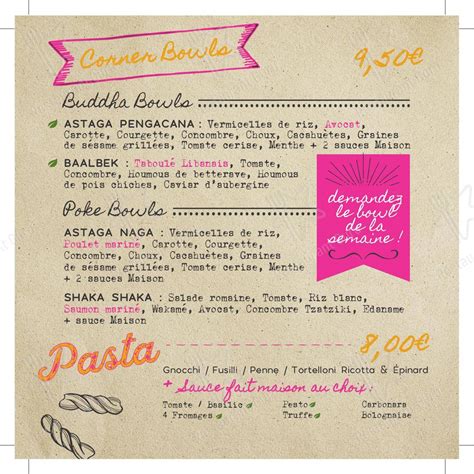 Corner Bowls 9,50€
Buddha Bowls
ASTAGA PENGACANA : Vermicelles de riz, Avocat,
Carotte, Courgette, Concombre, Choux, Cacahuètes, Graines
de sésame grillées, Tomate cerise, Menthe + 2 sauces Maison
BAALBEK : Taboulé Libanais, Tomate,
Concombre, Houmous de betterave, Houmous
de pois chiches, Caviar d'aubergine
demandez
le bowl
de la
semaine !
Poke Bowls
ASTAGA NAGA : Vermicelles de riz,
Poulet mariné, Carotte, Courgette,
Concombre, Choux, Cacahuètes, Graines
de sésame grillées, Tomate cerise, Menthe
+ 2 sauces Maison
SHAKA SHAKA : Salade romaine, Tomate, Riz blanc,
Saumon mariné, Wakamé, Avocat, Concombre Tzatziki, Edaname
+ sauce Maison
Pasta 8,00€
Gnocchi / Fusilli / Penne / Tortelloni Ricotta & Épinard
+ Sauce fait maison au choix :
Tomate / Basilic Pesto Carbonara
4 Fromages Truffe Bolognaise